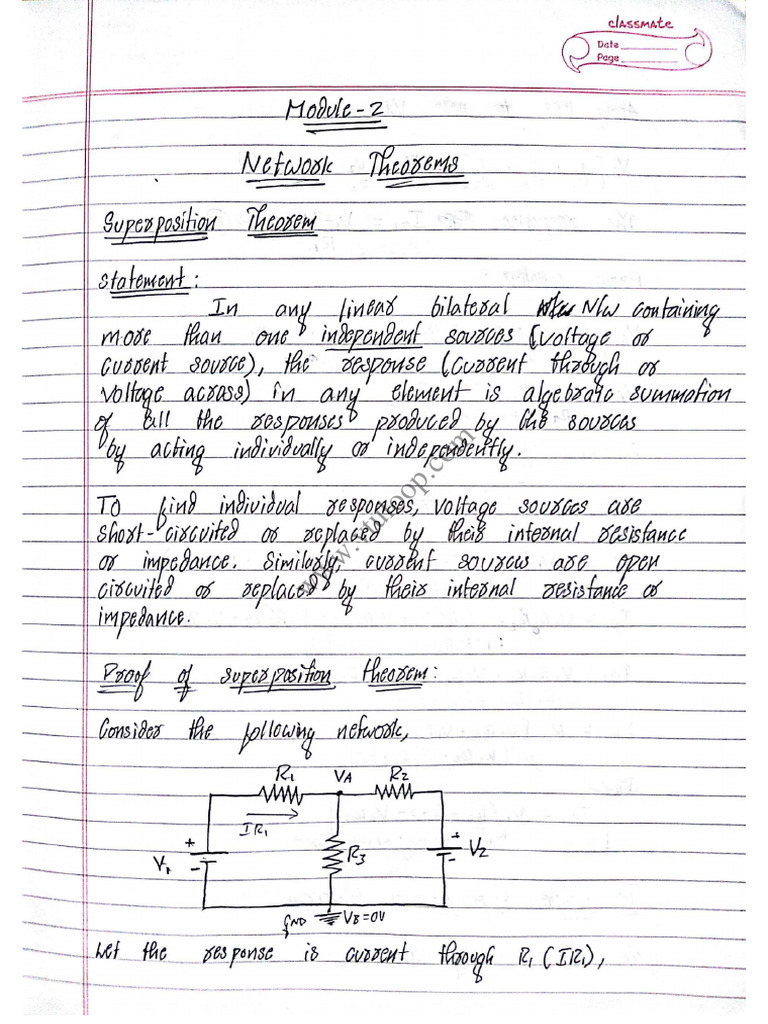 classmate
Date
Page
Module-2
Network Theorems
Superposition Theorem
Statement:
In any linear bilateral N/w containing
more than one independent sources (voltage or
current source), the response (current through or
voltage across) in any element is algebraic summation
of all the responses produced by the sources
by acting individually or independently.
To find individual responses, voltage sources are
short-circuited or replaced by their internal resistance
or impedance. Similarly, current sources are open
circuited or replaced by their internal resistance or
impedance.
Proof of superposition theorem:
Consider the following network,
R1 VA R2
IR1
+ V1 -
R3
+ - V2
GND VB=0V
Let the response is current through R1 (IR1),